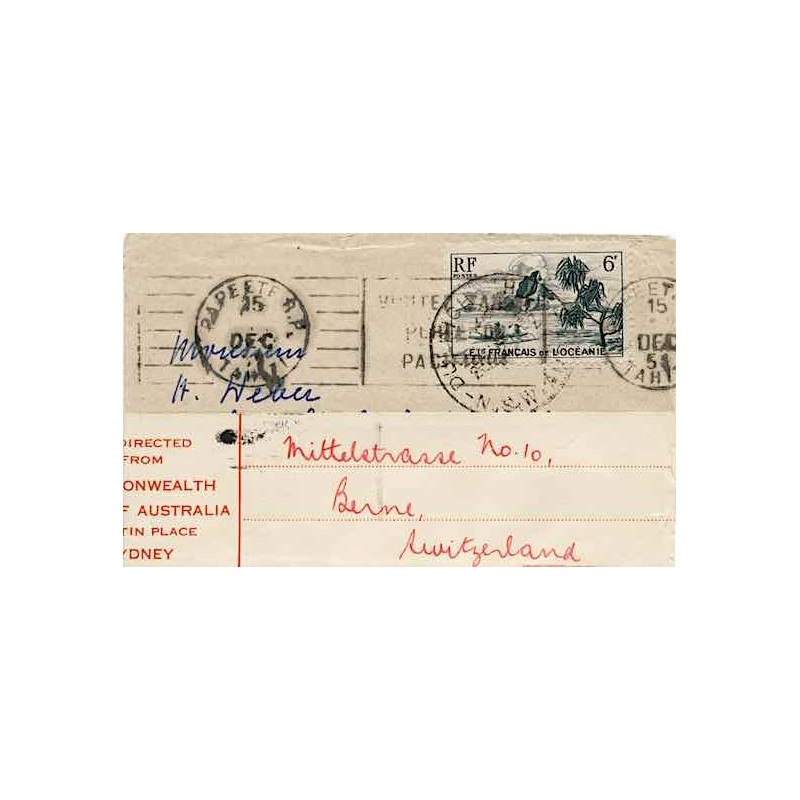 RF 6F
POSTES
PAPEETE R.P.
15
DEC
TAHITI
VISITEZ TAHITI
PERLE DU
PACIFIQUE
ETS FRANÇAIS DE L'OCÉANIE
N.S.W.
EETE
15
DEC
5
TAHITI
Monsieur
H. Weber
DIRECTED
FROM
ONWEALTH
F AUSTRALIA
TIN PLACE
YDNEY
Mittelstrasse No. 10,
Berne,
Switzerland